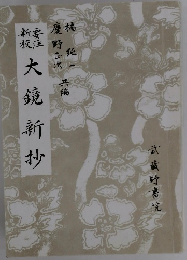 橘 純一
慶野正次 共編
新校
大鏡新抄
武蔵野書院